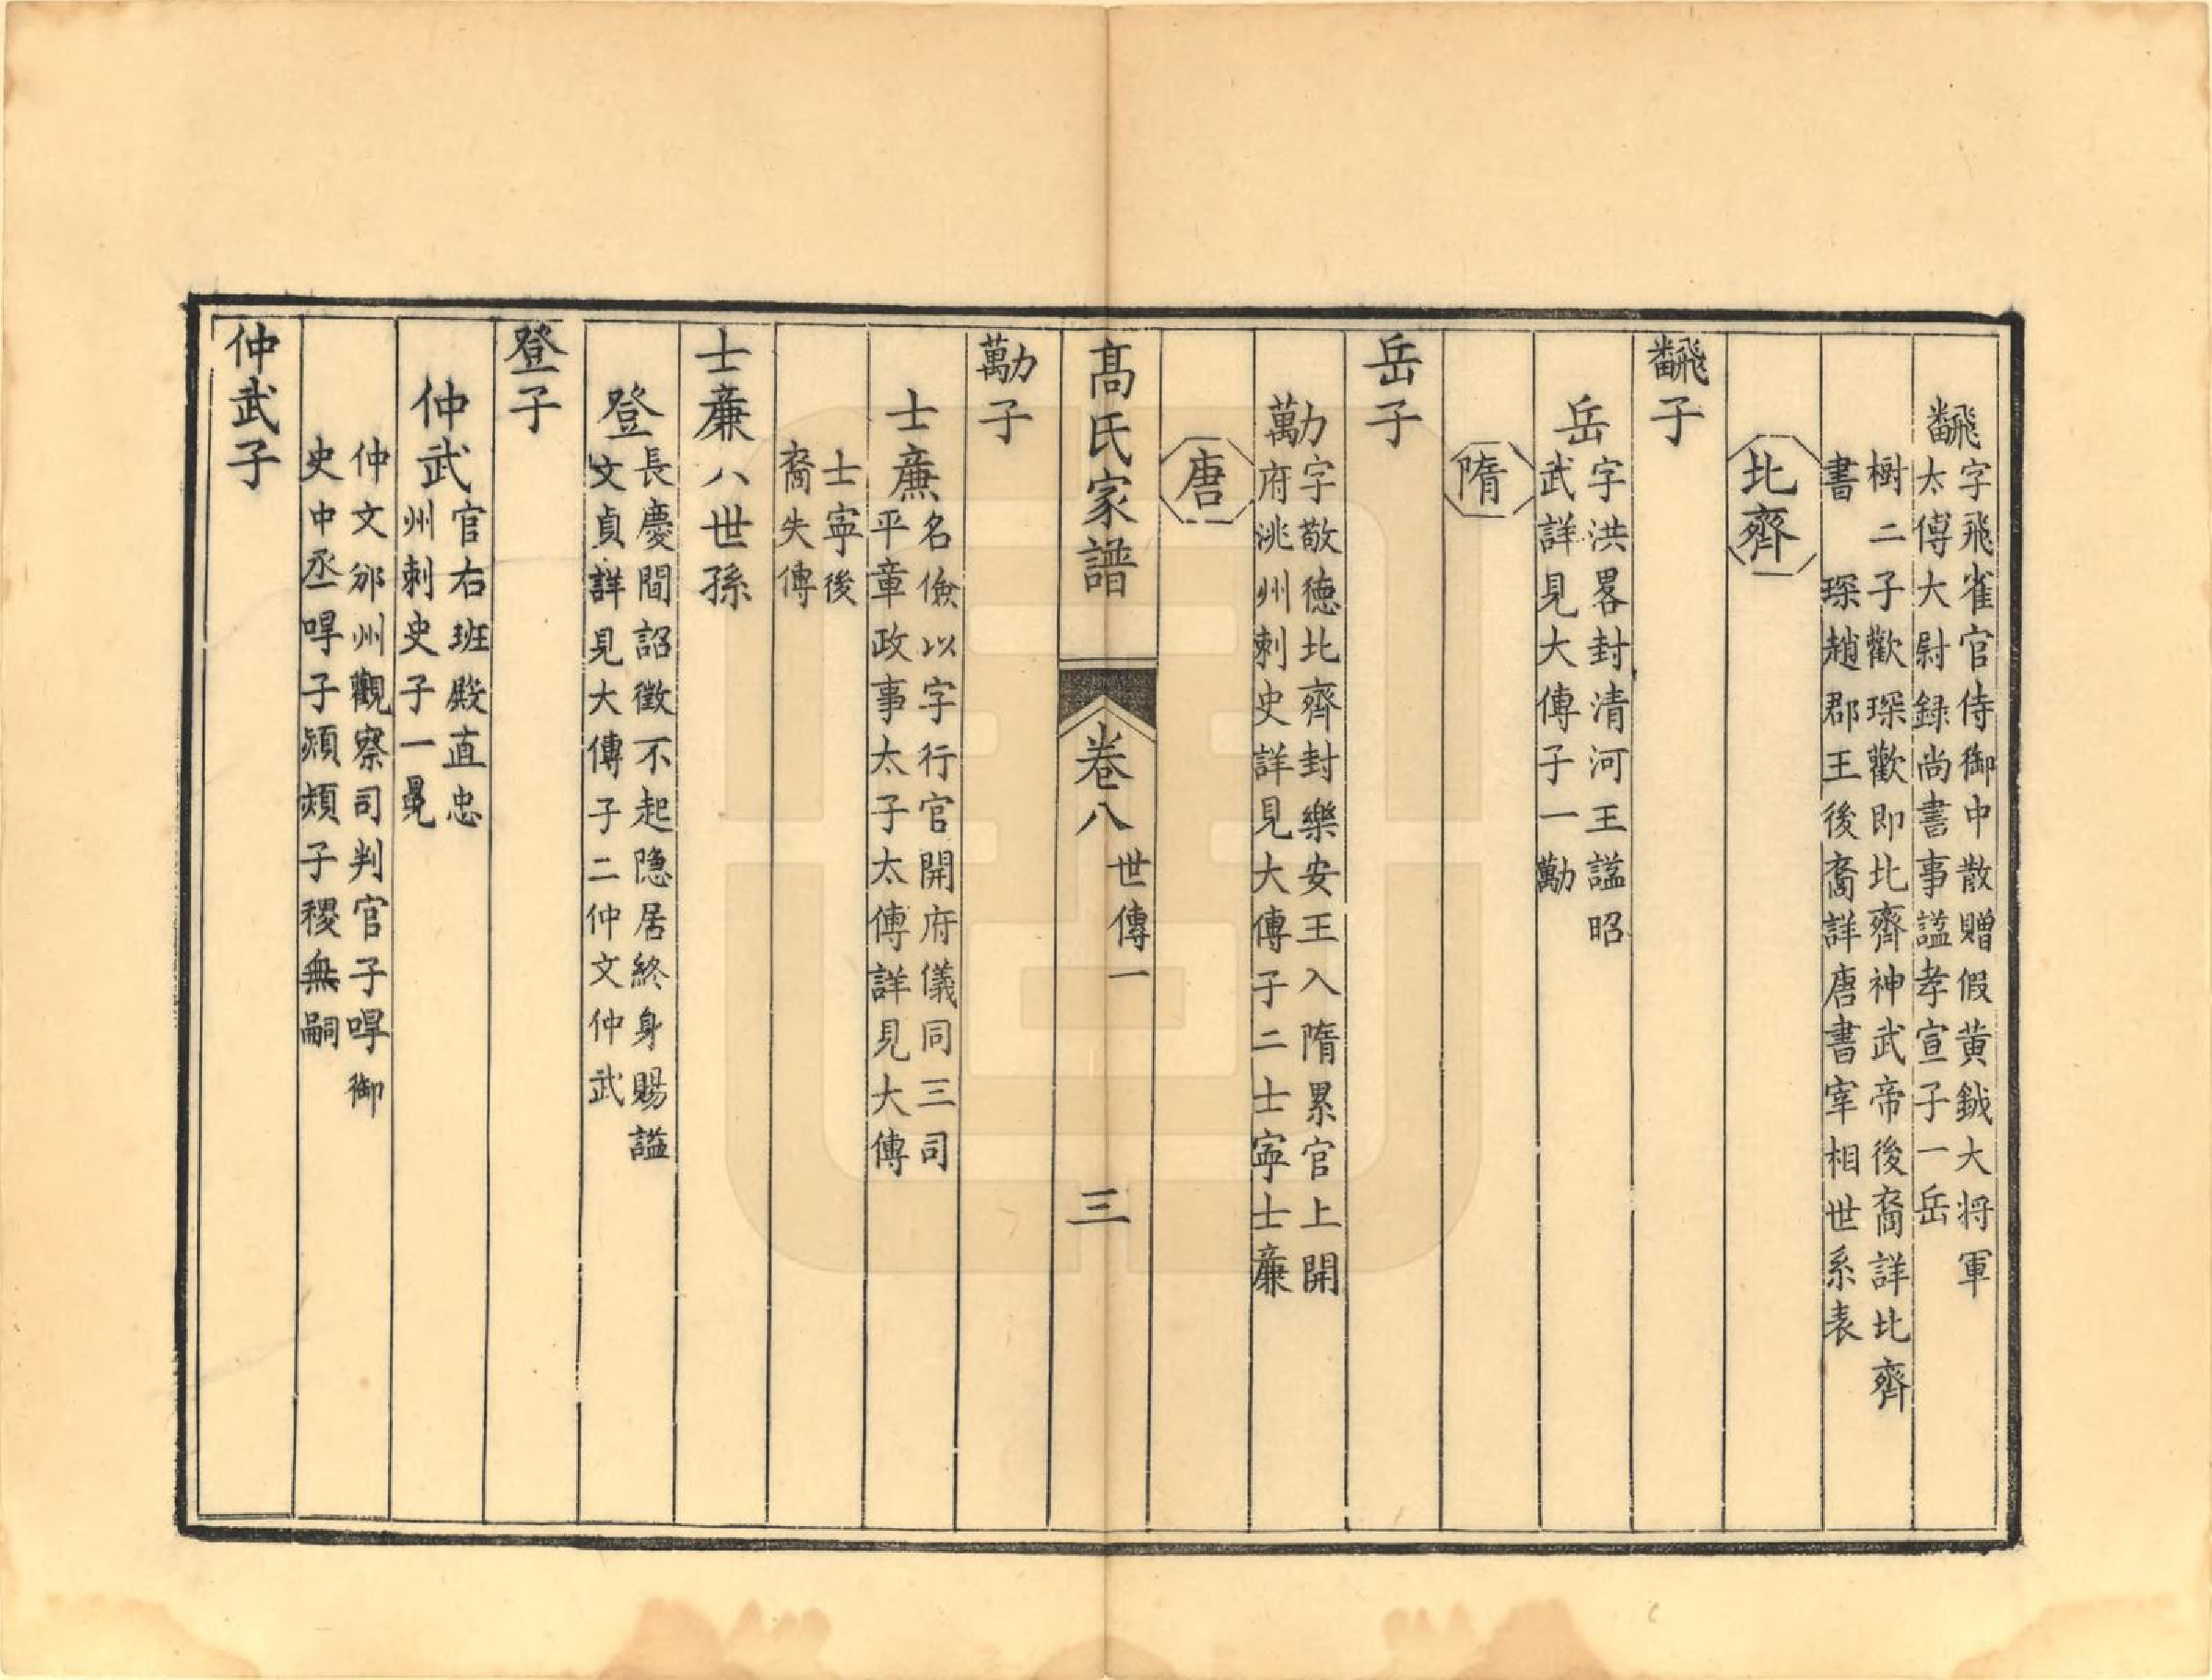 飜字飛雀官侍御中散贈假黄鉞大将軍
太傅大尉録尚書事謚孝宣子一岳
樹二子歡琛歡即北齊神武帝後裔詳北齊
書 琛趙郡王後裔詳唐書宰相世系表
北齊
飜子
岳字洪畧封清河王謚昭
武詳見大傳子一勱
隋
岳子
勱字敬德北齊封樂安王入隋累官上開
府洮州刺史詳見大傳子二士寜士亷
唐
高氏家譜 卷八 世傳一 三
勱子
士亷名儉以字行官開府儀同三司
平章政事太子太傅詳見大傳
士寜後
裔失傳
士亷八世孫
登長慶間詔徵不起隐居終身賜謚
文貞詳見大傳子二仲文仲武
登子
仲武官右班殿直忠
州刺史子一晃
仲文邠州觀察司判官子㫷御
史中丞㫷子熲熲子稷無嗣
仲武子